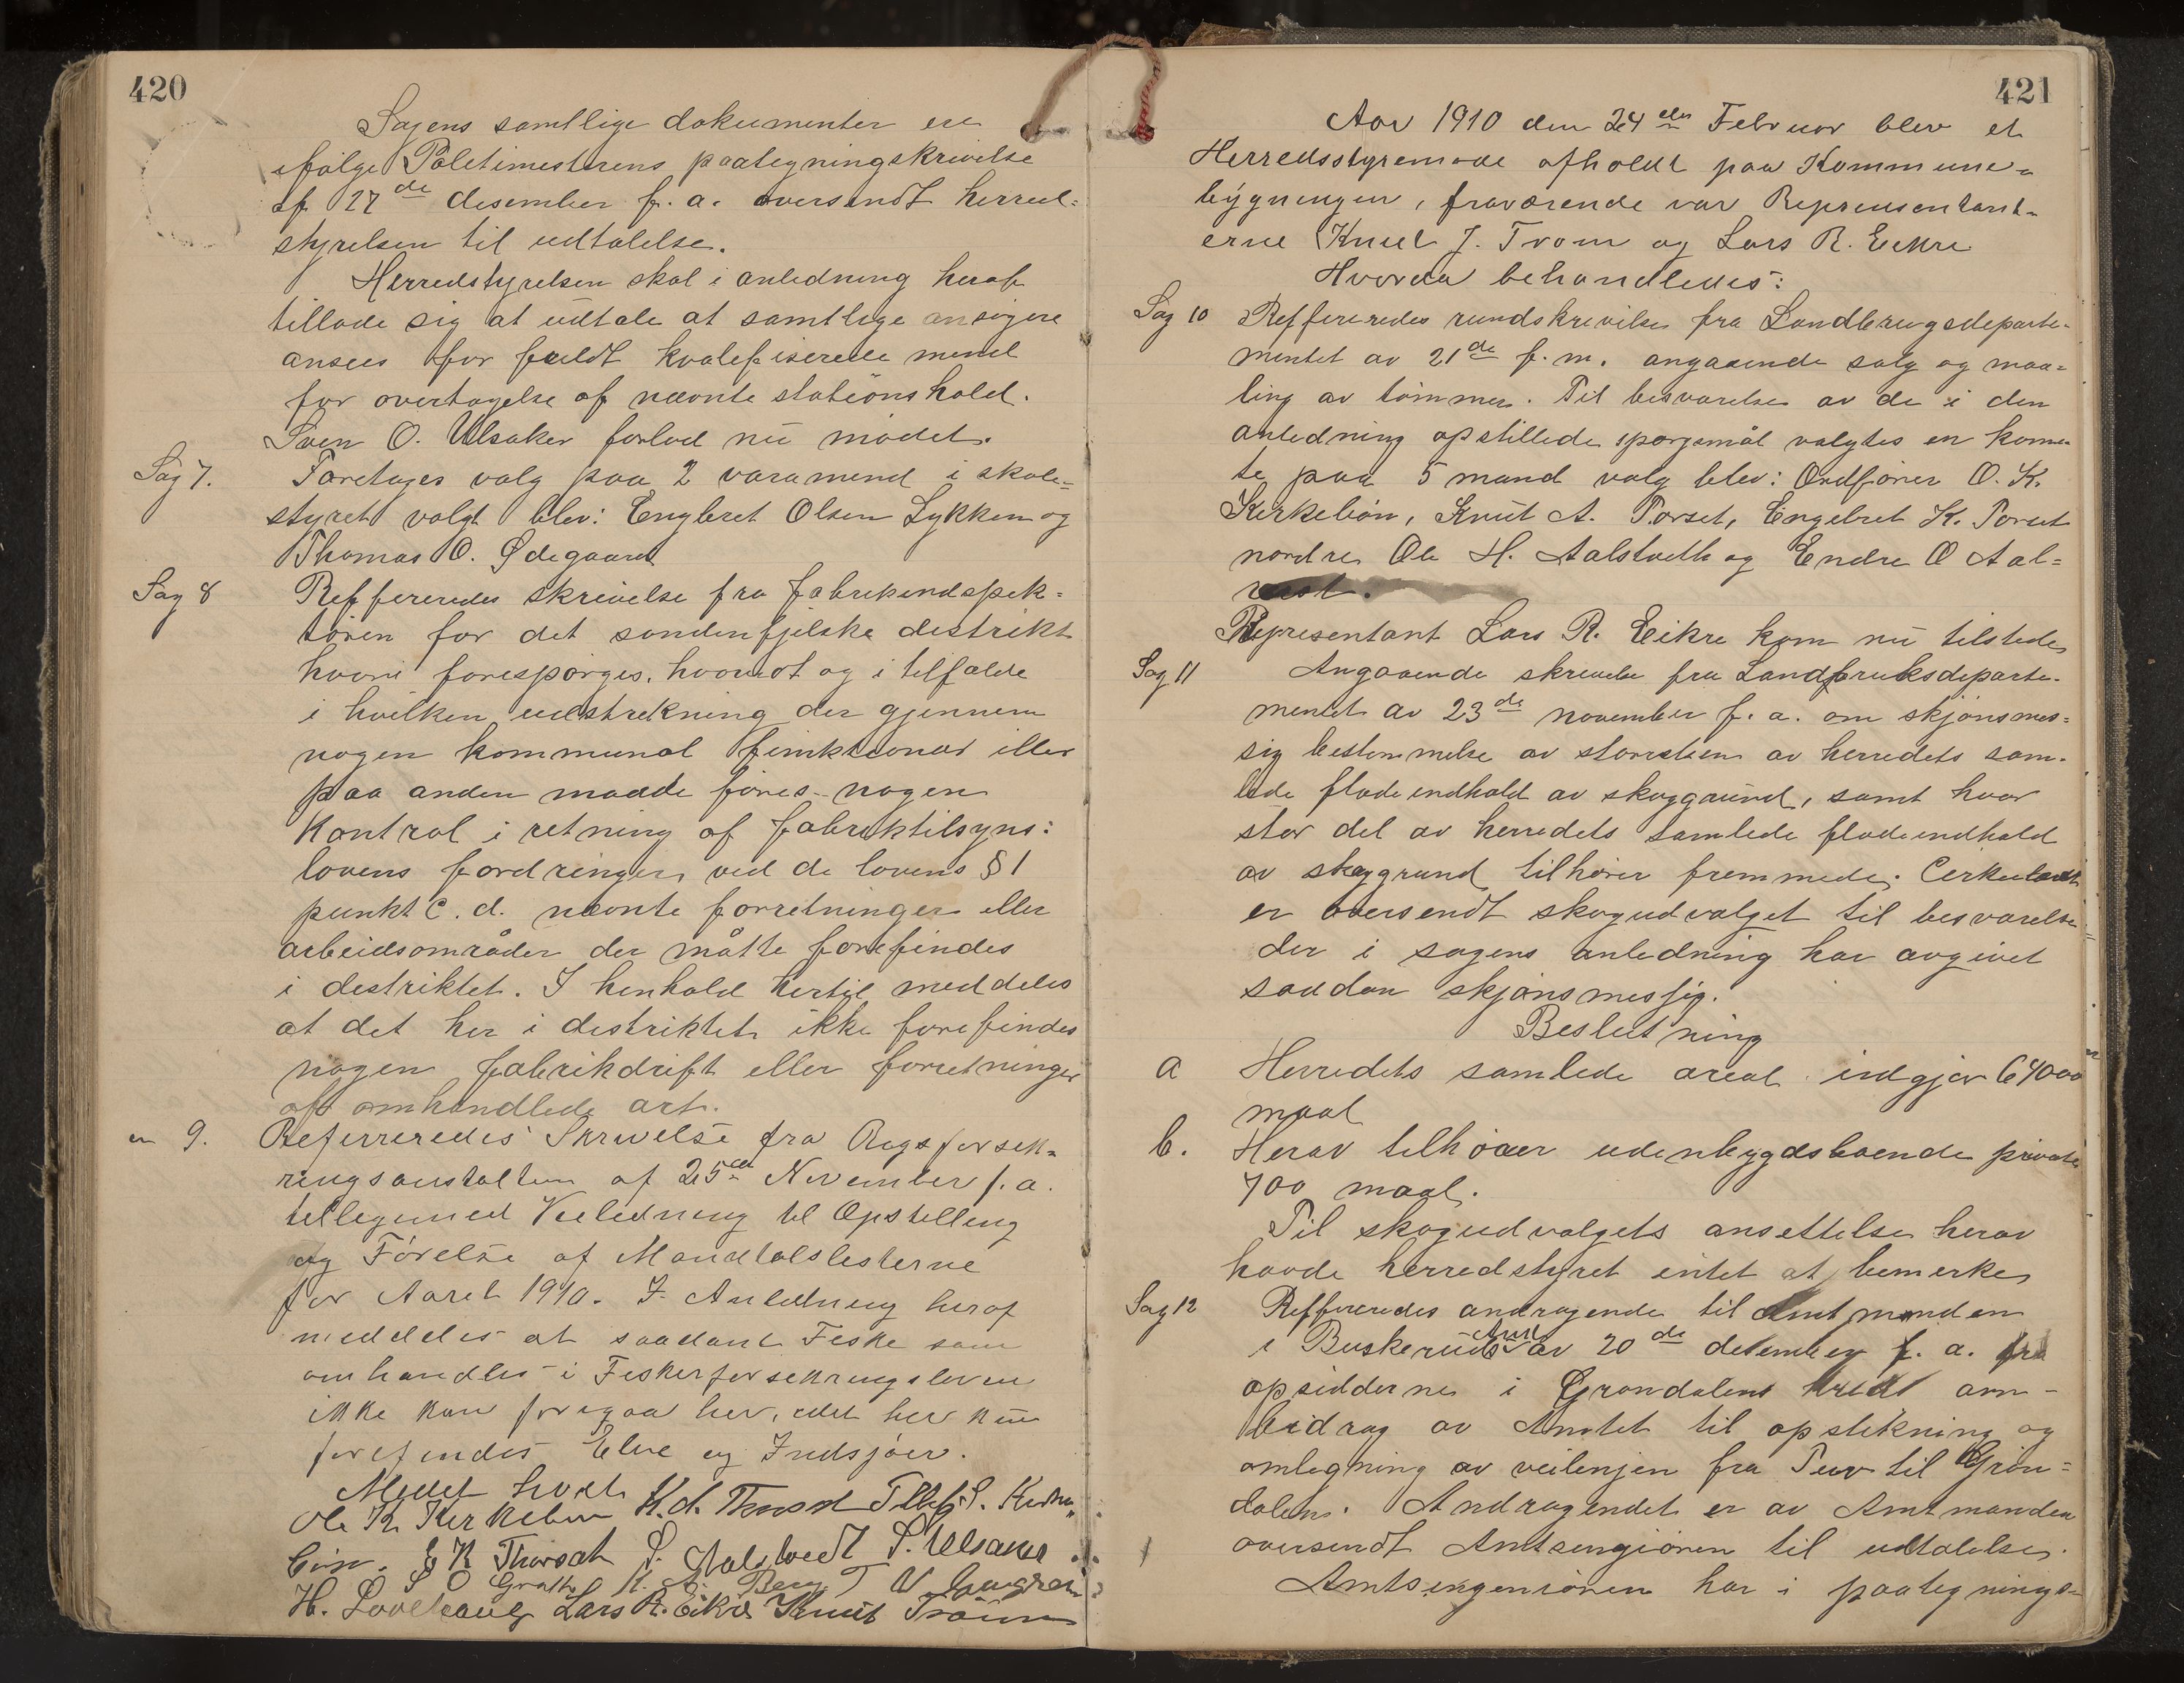 420
Sagens samtlige dokumenter ere
ifølge Politimesterens paategningskrivelse
af 27de desember f. a. oversendt herred-
styrelsen til udtalelse.
Herredstyrelsen skal i anledning heraf
tillade sig at udtale at samtlige ansøgere
ansees for fuldt kvalifiserede mend
for overtagelse af nævnte stationshold.
Sven O. Ulsaker forlod nu mødet.
Sag 7. Foretages valg paa 2 varamend i skole-
styret valgt blev: Engbret Olsen Lykken og
Thomas O. Ødegaard
Sag 8 Reffereredes skrivelse fra fabrikindspek-
tøren for det søndenfjelske distrikt
hvori forespørges, hvorvidt og i tilfælde
i hvilken udstrekning der gjennem
nogen kommunal funktionær eller
paa anden maade føres nogen
Kontrol i retning af fabriktilsyns:
lovens fordringer ved de lovens § 1
punkt c. d. nævnte forretninger eller
arbeidsområder der måtte forefindes
i destriktet. I henhold hertil meddeles
at det her i destriktet ikke forefindes
nogen fabrikdrift eller forretninger
af omhandlede art.
" 9. Refereredes Skrivelse fra Rigsforsik-
ringsanstalten af 25de November f. a.
tilligemed Veiledning til Opstilling
og Førelse af Mandtalslisterne
for Aaret 1910. I Anledning heraf
meddeles at saadant Fiske som
omhandles i Fiskerforsikringsloven
ikke kan foregaa her, idet her kun
forefindes Elve og Indsjøer.
Mødet hevet
Ole K. Kirkebøn K. A. Thorset
E K Thorset S. Aalstvedt S. Ulsaker
S O Grøth K. A. Berg T
H. Lovehaug Lars R. Eikre Knut Trøim
421
Aar 1910 den 24de Februar blev et
Herredsstyremøde afholdt paa Kommune-
bygningen, fraværende var Representant-
erne Knut J. Trøim og Lars R. Eikre
Hvorda behandledes:
Sag 10 Reffereredes rundskrivelse fra Landbrugsdeparte-
mentet av 21de f. m. angaaende salg og maa-
ling av tømmer. Til besvarelse av de i den
anledning opstillede spørgsmål valgtes en komi-
te paa 5 mand valg blev: Ordfører O. K.
Kirkebøn, Knut A. Torset, Engebret K. Torset
nordre Ole H. Aalstveth og Endre O Aal-
rust.
Representant Lars R. Eikre kom nu tilstede
Sag 11 Angaaende skrivelse fra Landbruksdeparte-
mentet av 23de november f. a. om skjønsmes-
sig bestemmelse av størrelsen av herredets sam-
lede fladeindhold av skoggrund, samt hvor
stor del av herredets samlede fladeindhold
av skoggrund tilhører fremmede. Cirkulæret
er oversendt skogudvalget til besvarelse
der i sagens anledning har avgivet
saadan skjønsmessig.
Beslutning
a Herredets samlede areal indgjør 67000
maal
b. Herav tilhører udenbygdsboende private
700 maal.
Til skogudvalgets ansettelse herav
havde herredstyret intet at bemerke
Sag 12 Reffereredes andragende til Amtmanden
i Buskeruds Amt av 20de desember f. a. fra
opsidderne i Grøndalens kreds om
bidrag av Amtet til opstikning og
omlegning av veilinjen fra Tuv til Grøn-
dalen. Andragendet er av Amtmanden
oversendt Amtsengiøren til udtalelse.
Amtsingeniøren har i paategnings-